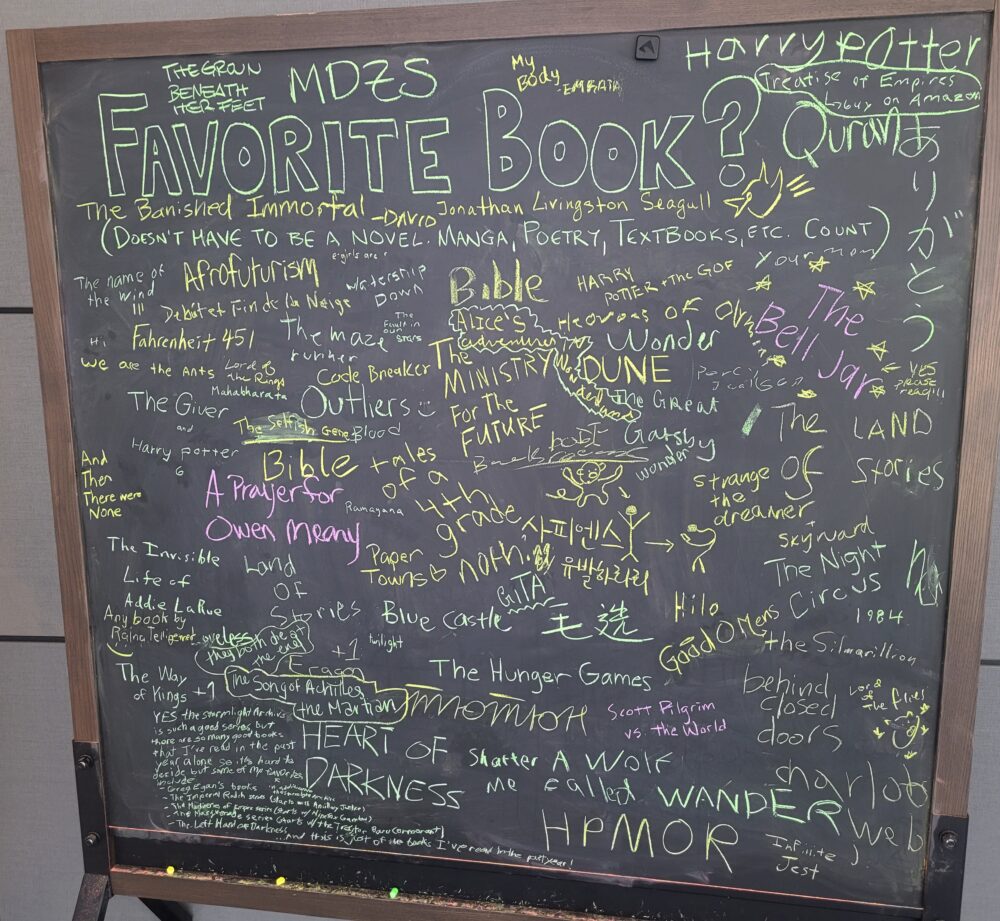 THE GROUN
BENEATH
HER FEET
MDZS
My
Body
Harry Potter
Treatise of Empires
↳ buy on Amazon
FAVORITE BOOK?
Quran
ありがとう
The Banished Immortal - DAVID
Jonathan Livingston Seagull
(DOESN'T HAVE TO BE A NOVEL. MANGA, POETRY, TEXTBOOKS, ETC. COUNT)
your mom
The name of
the wind
!!!
Afrofuturism
e-girls are
Watership
Down
Bible
HARRY
POTTER + the GOF
Début et Fin de la Neige
The
Bell Jar
Hi
Fahrenheit 451
The maze
runner
The
Fault in
our
stars
ALICE'S
adventures
Wonderland
Heroes of Olympus
Wonder
We are the Ants
Lord of
the Rings
Mahabharata
Code Breaker
The
MINISTRY
FOR THE
FUTURE
DUNE
Percy
Jackson
← YES
please
read!!!
The Giver
and
Harry Potter
6
Outliers
The Great
Gatsby
The Selfish Gene
Blood
The LAND
OF Stories
And
Then
There were
None
Bible
tales
of a
4th
grade
nothing
wonder
strange
the
dreamer
A Prayer for
Owen Meany
Ramayana
사피엔스
유발하라리
skyward
The Invisible
Life of
Addie LaRue
Land
OF
Stories
Paper
Towns
The Night
Circus
GITA
Any book by
Raina Telgemeier
Blue Castle
毛选
Hilo
1984
Loveless
they both die at
the end
twilight
Good Omens
the Silmarillion
Eragon
+1
The Way
of Kings +1
The Song of Achilles
the Martian
The Hunger Games
behind
closed
doors
Lord
of
the flies
Scott Pilgrim
vs. the World
YES the stormlight Archive
is such a good series, but
there are so many good books
that I've read in the past
year alone so it's hard to
decide but some of my favorites
include
- Greg Egan's books
- The Imperial Radch series (starts with Ancillary Justice)
- The Masquerade series (starts w/ the Traitor Baru Cormorant)
- The Left Hand of Darkness
...and this is just of the books I've read in the past year!
HEART OF
DARKNESS
Shatter
me
A Wolf
called WANDER
charlotte
web
HPMOR
Infinite
Jest